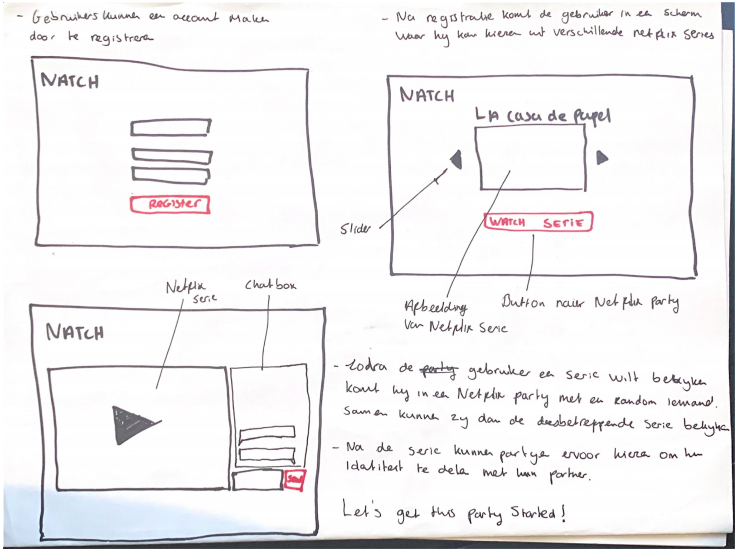 - Gebruikers kunnen een account maken
door te registreren
NATCH
REGISTER
- Na registratie komt de gebruiker in een scherm
waar hij kan kiezen uit verschillende netflix series
NATCH
LA casa de papel
WATCH SERIE
Slider
Afbeelding
van Netflix Serie
Button naar Netflix party
Netflix
serie
Chatbox
NATCH
Send
- Zodra de party gebruiker een serie wilt bekijken
komt hij in een Netflix party met een random iemand.
Samen kunnen zij dan de desbetreffende serie bekijken
- Na de serie kunnen partijen ervoor kiezen om hun
Identiteit te delen met hun partner.
Let's get this party Started!